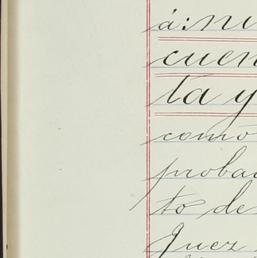 á: ni
cuen
ta y
como
proba
to de
Juez